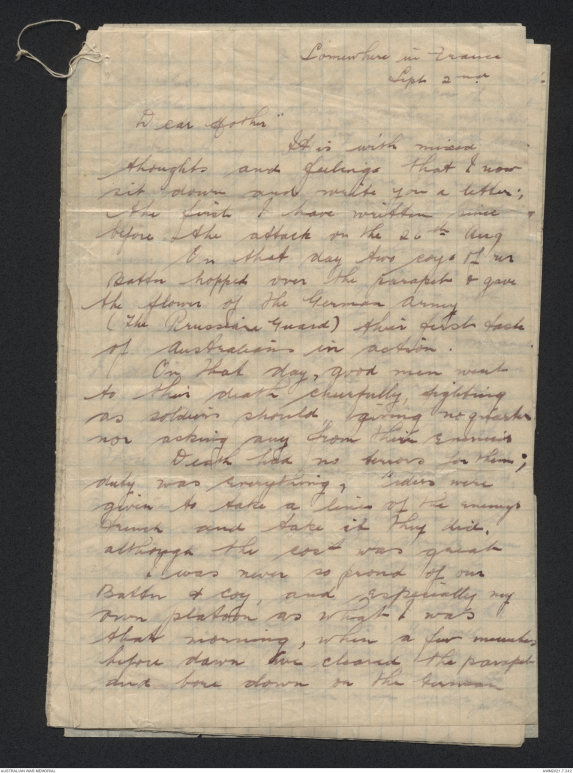 Somewhere in France
Sept 2nd
Dear Mother"
It is with mixed
thoughts and feelings that I now
sit down and write you a letter;
the first I have written since
before the attack on the 26th Aug
On that day two coys of our
Battn hopped over the parapet & gave
the flower of the German Army
(The Prussian Guard) their first taste
of Australians in action.
On that day, good men went
to their death cheerfully, fighting
as soldiers should giving no quarter
nor asking any from their enemies
Death had no terrors for them;
duty was everything, orders were
given to take a line of the enemys
trench and take it they did,
although the cost was great
I was never so proud of our
Battn & Coy, and especially my
own platoon as what I was
that morning, when a few minutes
before dawn we cleared the parapet
and bore down on the German
AUSTRALIAN WAR MEMORIAL